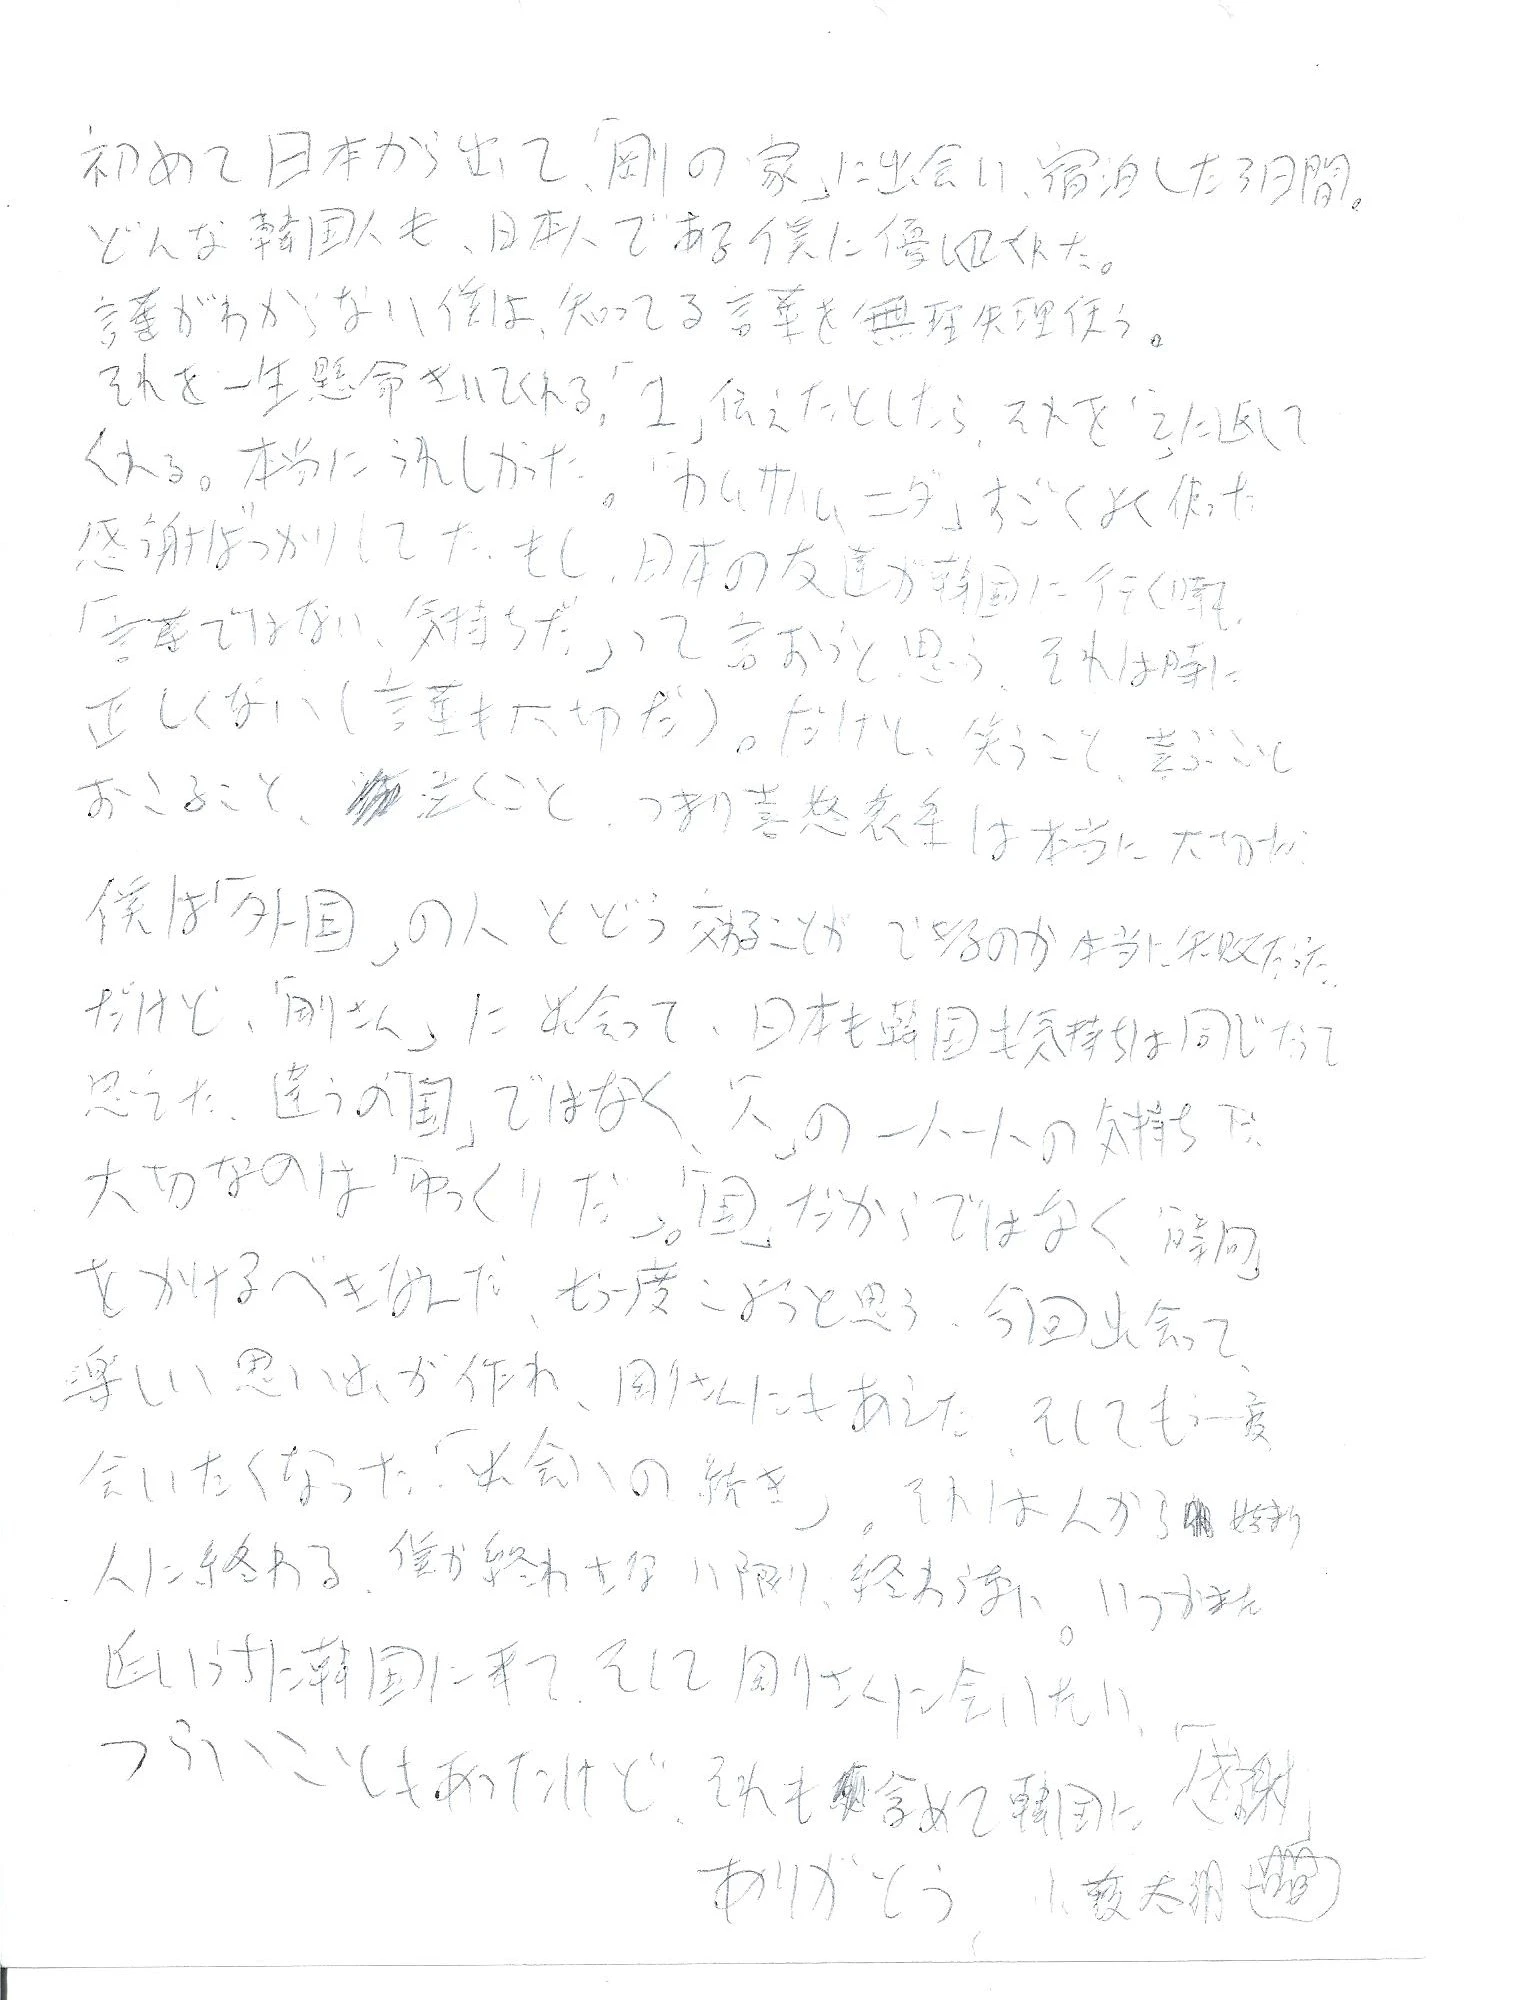 初めて日本から出て、「剛の家」に出会い、宿泊した3日間。
どんな韓国人も、日本人である僕に優しくしてくれた。
言葉がわからない僕は、知ってる言葉を無理矢理使う。
それを一生懸命きいてくれる。「1」伝えたとしたら、それを「2」に返して
くれる。本当にうれしかった。「カムサハムニダ」すごくよく使った
感謝ばっかりしてた。もし、日本の友達が韓国に行く時も、
「言葉ではない、気持ちだ」って言おうと思う。それは時に
正しくない(言葉も大切だ)。だけど、笑うこと、喜ぶこと
おこること、泣くこと、つまり喜怒哀楽は本当に大切だ
僕は「外国」の人とどう交わることができるのか本当に失敗だった
だけど、「剛さん」に出会って、日本も韓国も気持ちは同じだって
思えた。違うの「国」ではなく、「人」の一人一人の気持ちだ。
大切なのは「ゆっくりだ」。「国」だからではなく、「時間」
をかけるべきなんだ、もう一度こようと思う。今回出会って、
楽しい思い出が作れ、剛さんにもあえた。そしてもう一度
会いたくなった。「出会いの続き」。それは人から始まり
人に終わる。僕が終わらせない限り、終わらない。いつかまた
近いうちに韓国に来て、そして剛さんに会いたい。
つらいこともあったけど、それも含めて韓国に「感謝」
ありがとう